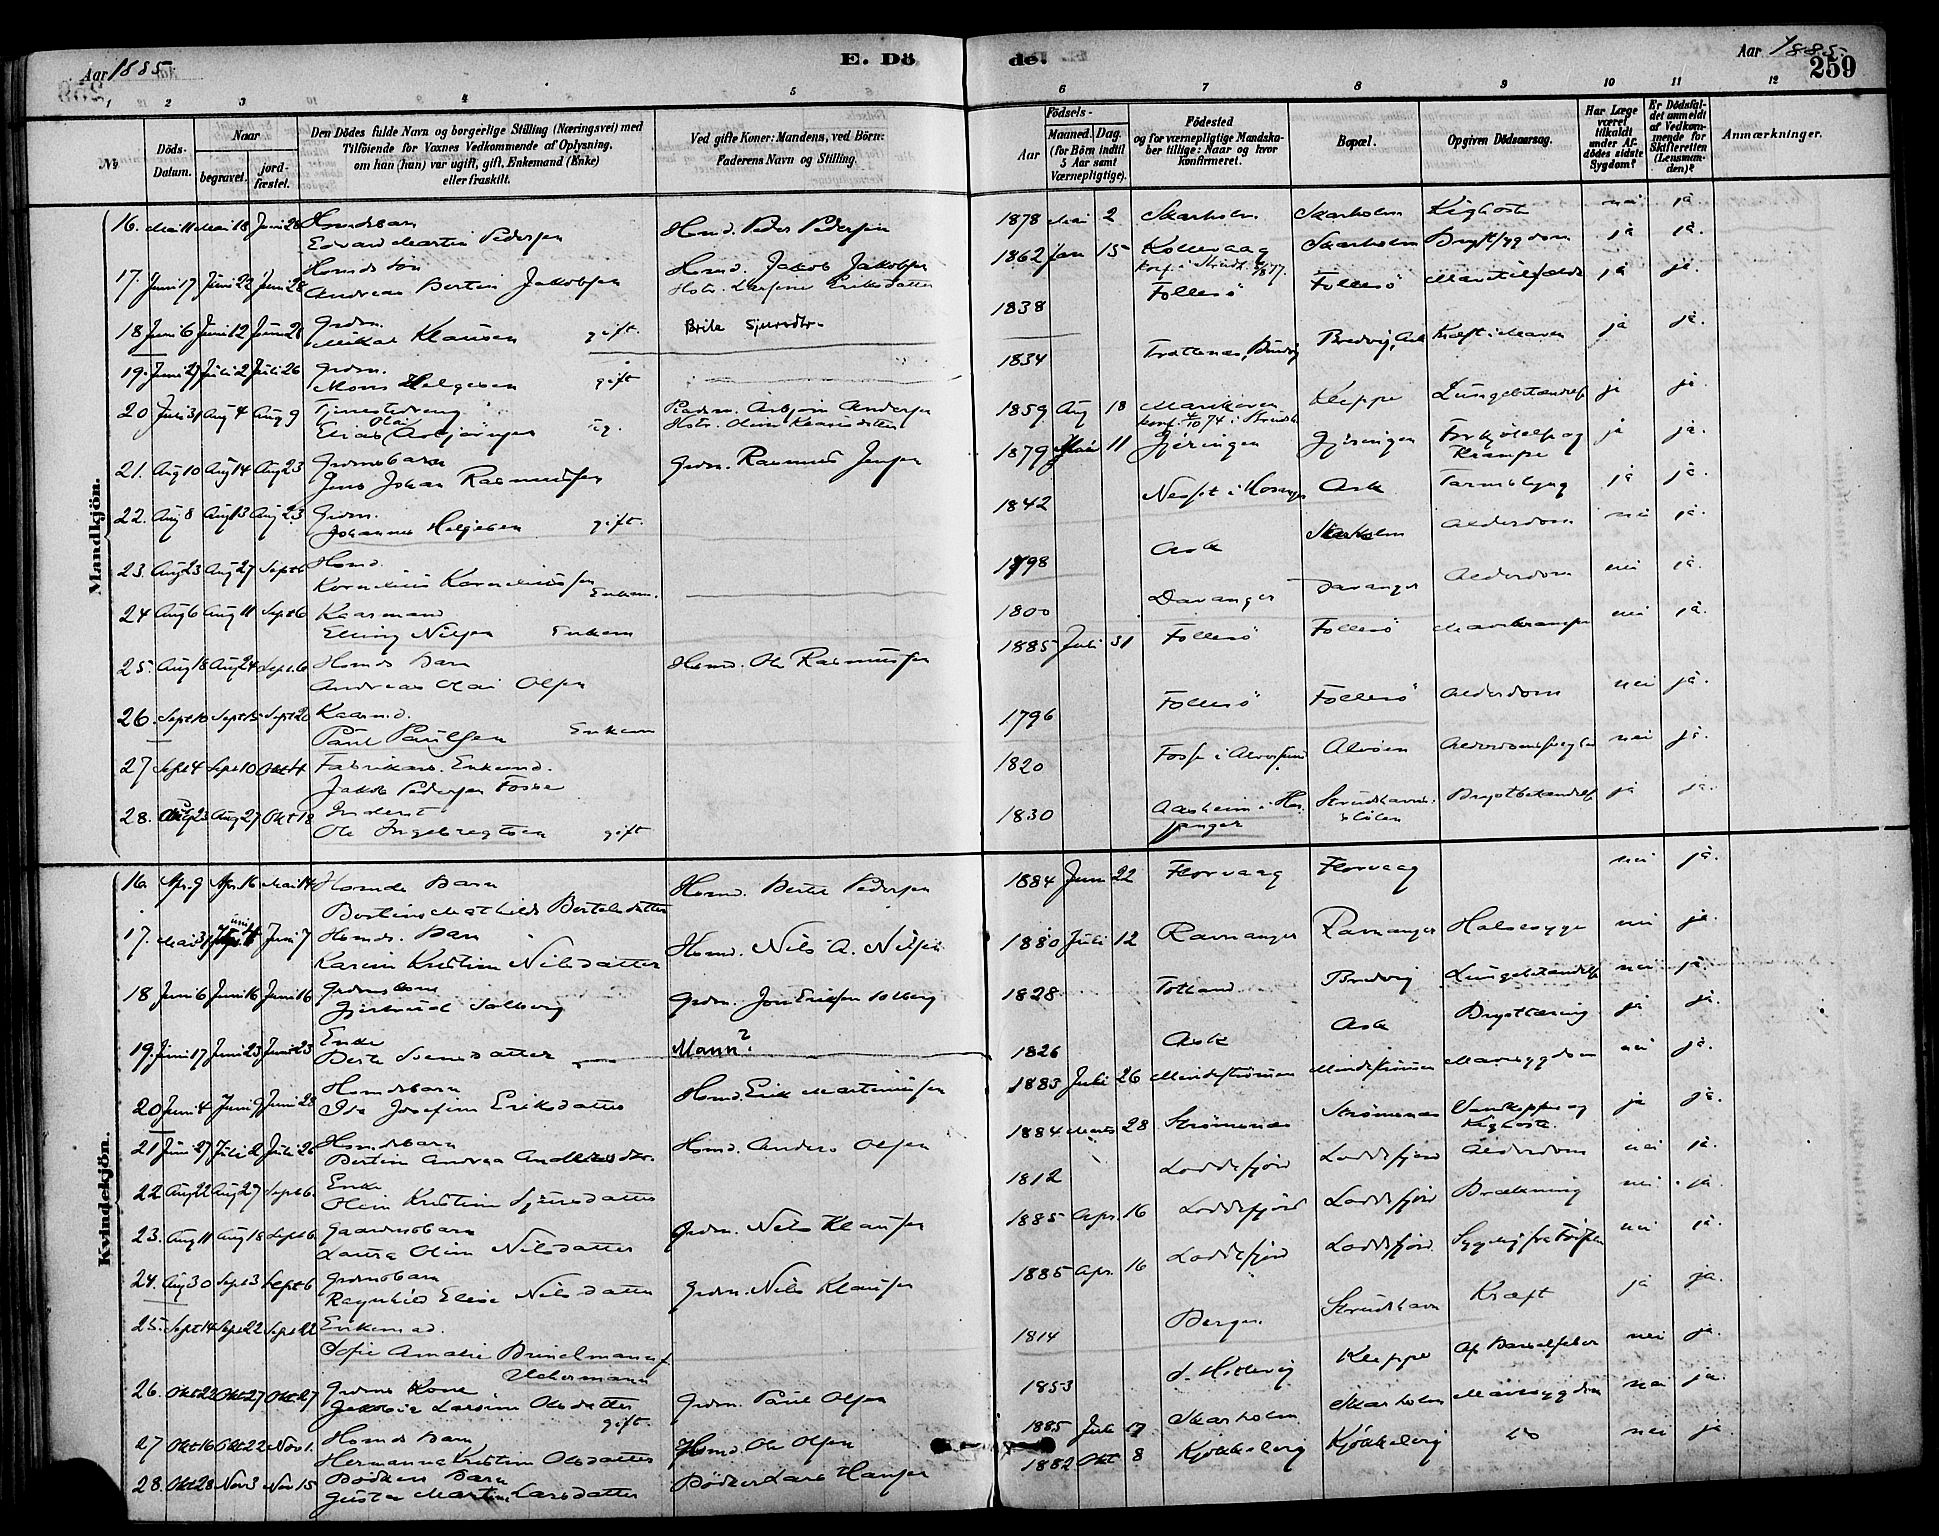 Aar 1885
E. Döde.
Aar 1885.
259
1 2 3 4 5 6 7 8 9 10 11 12
№
Döds-Datum.
Naar
begravet.
jord-fæstet.
Den Dödes fulde Navn og borgerlige Stilling (Næringsvei) med
Tilföiende for Voxnes Vedkommende af Oplysning,
om han (hun) var ugift, gift, Enkemand (Enke)
eller fraskilt.
Ved gifte Koner: Mandens, ved Börn:
Faderens Navn og Stilling.
Födsels-
Aar
Maaned. Dag.
(for Börn indtil
5 Aar samt
Værnepligtige).
Födested
og for værnepligtige Mandskaber tillige: Naar og hvor
konfirmeret.
Bopæl.
Opgiven Dödsaarsag.
Har Læge
været
tilkaldt
under Afdödes sidste
Sygdom?
Er Dödsfaldet anmeldt
af Vedkommende for
Skifteretten
(Lensmanden)?
Anmærkninger.
Mandkjön.
16. Mai 11 Mai 18 Juni 28 Husmdsbarn
Edvard Martin Pedersen Husmd. Peder Pedersen 1878 Mai 2 Skarholm Skarholm Kighoste nei ja
17. Juni 17 Juni 22 Juni 28 Husmds søn
Andreas Bertin Jakobsen Husmd. Jakob Jakobsen 1862 Jan 15 Kollevaag Skarholm Brystsygdom ja ja.
18 Juni 6 Juni 12 Juni 28 Grdm.
Mikal Klausen gift. Brite Sjursdtr. 1838 Follesö Follesö ja ja.
19. Juni 27 Juli 2 Juli 26 Grdm.
Mons Helgesen gift 1834 Bredvig, Ask Kræft i Maven ja ja.
20 Juli 31 Aug 4 Aug 9 Tjenestedreng
Elias Olai Asbjörnsen ug. Asbjörn Andersen 1859 Aug 18 Kleppe Lungebetændelse ja ja
21. Aug 10 Aug 14 Aug 23 Grdmsbarn
Jens Johan Rasmussen Grdm. Rasmus Jensen 1879 Mai 11 Gjeringen Gjeringen Forkjölelse og
Krampe ja ja.
22. Aug 8 Aug 13 Aug 23 Grdm.
Johannes Helgesen gift. 1842 Ask ja ja.
23. Aug 23 Aug 27 Sept 6 Husmd.
Kornelius Korneliussen Enkem. 1798 Ask Skarholm Alderdom nei ja.
24 Aug 6 Aug 11 Sept 6 Kaarmand
Elling Nilsen Enkem 1800 Davanger Davanger Alderdom nei ja.
25. Aug 18 Aug 24 Sept. 6 Husmds Barn
Andreas Olai Olsen Husmd. Ole Rasmussen 1885 Juli 31 Follesö Follesö Mavekrampe nei ja.
26. Sept 10 Sept 15 Sept 20 Kaarmd.
Paul Paulsen Enkem 1796 Follesö Follesö Alderdom nei ja.
27 Sept 4 Sept 10 Okt 4 Fabrikarb. Enkemd.
Jakob Pedersen Fosse 1820 Alvöen nei ja.
28. Aug 23 Aug 27 Okt 18 Inderst
Ole Ingebregtsen gift 1830 Brystbetændelse ja ja.
Kvindekjön.
16. Apr. 9 Apr. 16 Mai 14 Husmds Barn
Bertine Mathilde Bertelsdatter Husmd. Bertel Pedersen 1884 Juni 22 Florvaag Florvaag nei ja.
17. Mai 31 Juni 4 Juni 7 Husmds. Barn
Karine Kristine Nilsdatter Husmd. Nils A. Nilsen 1880 Juli 12 Ravnanger Ravnanger Halssyge nei ja.
18 Juni 6 Juni 16 Juni 16 Grdmskone
Gjertrud Solberg Grdm. Jon Eriksen Solberg 1828 Totland Bredvig Lungebetændelse nei ja.
19. Juni 17 Juni 23 Juni 23 Enke
Mann? 1826 Ask Ask Brysttæring ja ja.
20 Juni 4 Juni 9 Juni 28 Husmdsbarn
Ida Josefine Eriksdatter Husmd. Erik Martinussen 1883 Juli 26 Mindeströmmen Mindeströmmen Mavesygdom nei ja.
21 Juni 27 Juli 2 Juli 26 Husmdsbarn
Bertine Andrea Andersdtr. Husmd. Anders Olsen 1884 Marts 28 Strömsnes Strömsnes Vandkopper og
Kighoste. ja ja.
22 Aug 22 Aug 27 Sept 6. Enke
Oline Kristine Sjursdatter 1812 Loddefjord Loddefjord Alderdom nei ja.
23. Aug 11 Aug 18 Sept 6 Gaardmsbarn
Laura Oline Nilsdatter Grdm. Nils Klausen 1885 Apr. 16 Loddefjord Loddefjord Brækning nei ja.
24. Aug 30 Sept 3 Sept 6 Grdmsbarn
Ragnhild Elise Nilsdatter Grdm. Nils Klausen 1885 Apr. 16 Loddefjord Loddefjord Sygelig fra Födslen nei ja.
25. Sept 14 Sept 22 Sept 22 Enkemad.
Sofie Amalie Brinckmann f.
Uchermann 1814 Bergen Strudshavn Kræft ja ja.
26. Okt 22 Okt 27 Okt 27 Grdms Kone
Jakobia Larsine Olsdatter gift. Grdm. Paul Olsen 1853 Kleppe Af Barselfeber nei ja.
27 Okt 16 Okt 22 Nov 1. Husmds Barn
Hermanna Kristine Olsdatter Husmd. Ole Olsen 1885 Juli 17 Skarholm Skarholm Mavesygdom nei ja.
28. Okt 28 Nov 3 Nov 15 Bödkers Barn
Gusta Martine Larsdatter Bödker Lars Hansen 1882 Okt 8 Kjökkelvig Kjökkelvig nei ja.